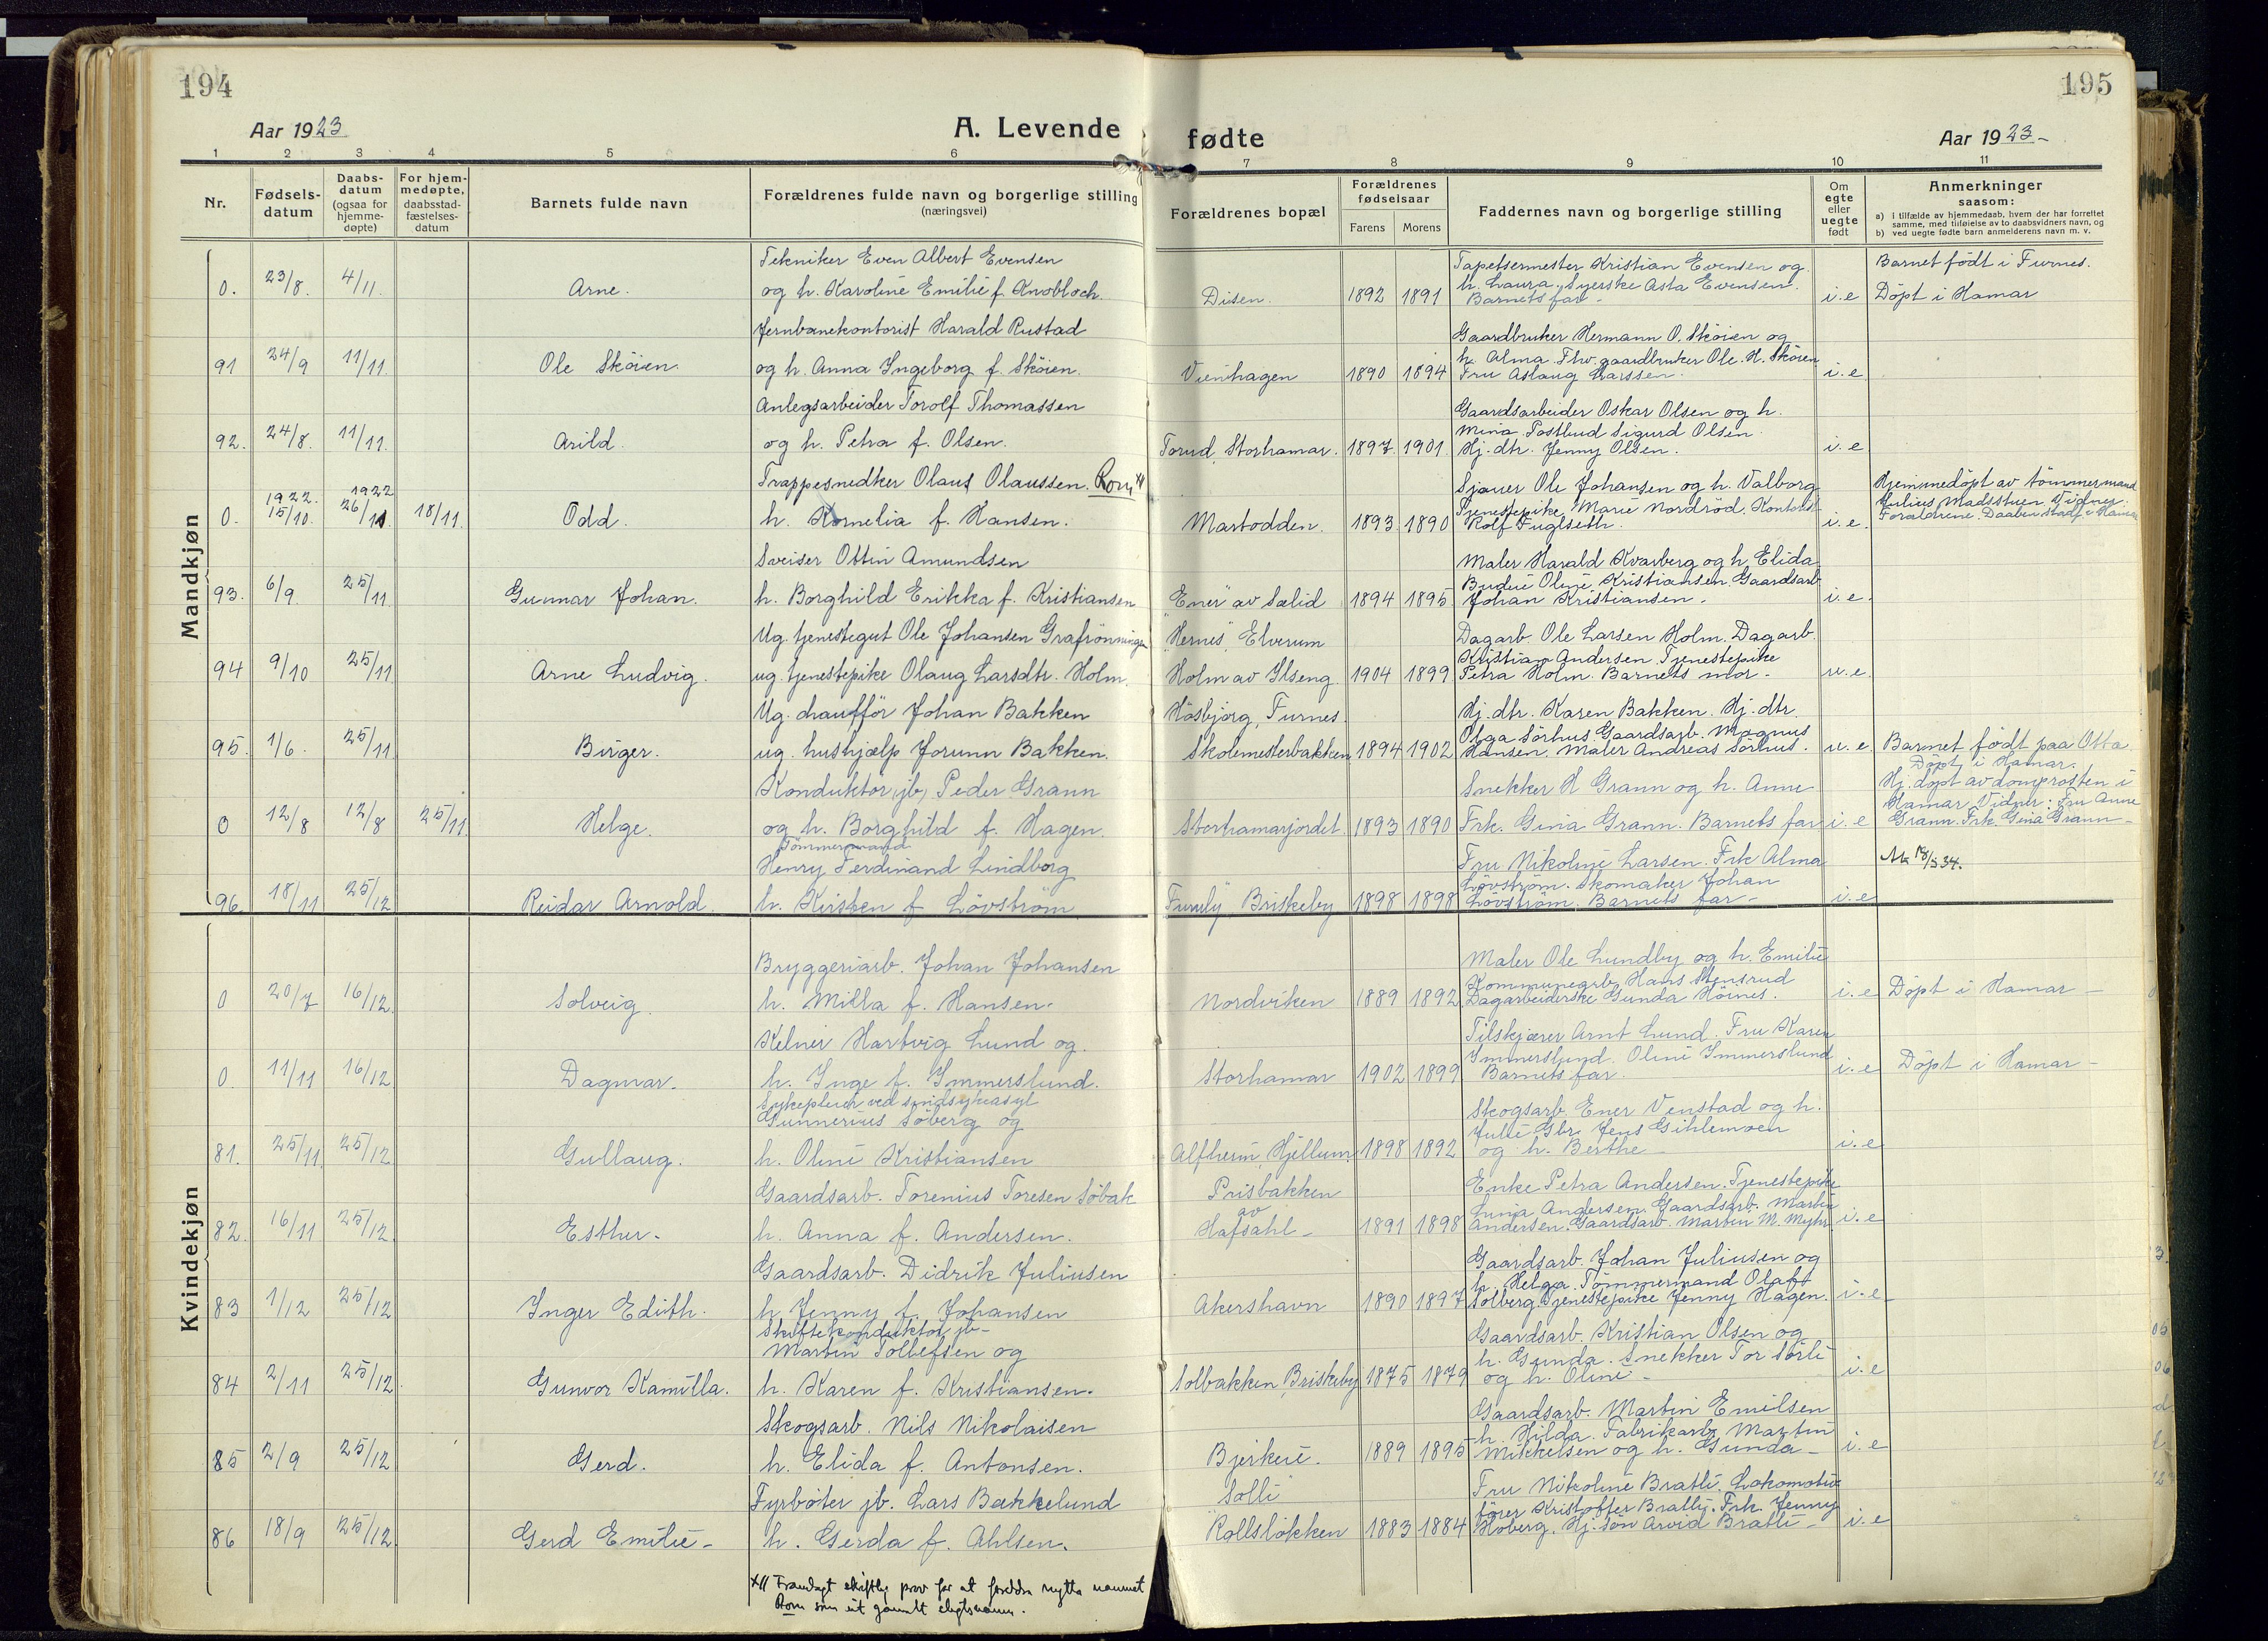 194
195
Aar 1923
A. Levende fødte
Aar 1923 -
1 2 3 4 5 6 7 8 9 10 11
Nr.
Fødsels-
datum
Daabs-
datum
(ogsaa for
hjemme-
døpte)
For hjem-
medøpte,
daabsstad-
fæstelses-
datum
Barnets fulde navn
Forældrenes fulde navn og borgerlige stilling
(næringsvei)
Forældrenes bopæl
Forældrenes
fødselsaar
Farens Morens
Faddernes navn og borgerlige stilling
Om
egte
eller
uegte
født
Anmerkninger
saasom:
a) i tilfælde av hjemmedaab, hvem der har forrettet
samme, med tilføielse av to daabsvidners navn, og
b) ved uegte fødte barn anmelderens navn m. v.
Mandkjøn
0. 23/8. 4/11. Arne.
Tekniker Even Albert Evensen
og h. Karoline Emilie f. Knobloch.
Disen. 1892 1891
Tapetsermester Kristian Evensen og
h. Laura, Syerske Asta Evensen.
Barnets far -
i. e
Barnet födt i Furnes.
Döpt i Hamar
91 24/9 11/11. Ole Sköien.
Jernbanekontorist Harald Rustad
og h. Anna Ingeborg f. Sköien.
Vienhagen 1890 1894
Gaardbruker Hermann O. Sköien og
h. Alma. Fhv. gaardbruker Ole H. Sköien
Fru Aslaug Larssen.
i. e
92. 24/8. 11/11. Arild.
Anlegsarbeider Torolf Thomassen
og h. Petra f. Olsen.
Torud, Storhamar. 1897. 1901.
Gaardsarbeider Oskar Olsen og h.
Mina. Postbud Sigurd Olsen.
Hj. dtr. Jenny Olsen.
i. e
0. 1922. 15/10. 1922 26/11 18/11. Odd.
Trappesnedker Olaus Olaussen. Rom x)
h. Kornelia f. Hansen.
Martodden. 1893 1890
Sjauer Ole Johansen og h. Valborg
Tjenestepike Marie Nordröd. Kontorist
Rolf Fuglseth.
i. e.
Hjemmedöpt av tömmermand
Julius Madsstuen. Vidner:
Forældrene. Daaben stadf. i Hamar
93. 6/9. 25/11. Gunnar Johan.
Sveiser Ottin Amundsen
h. Borghild Erikka f. Kristiansen
"Ener" av Sælid 1894 1895
Maler Harald Kvarberg og h. Elida
Budeie Oline Kristiansen. Gaardsarb
Johan Kristiansen.
i. e.
94 9/10 25/11. Arne Ludvig.
Ug. tjenestegut Ole Johansen Grafrönningen
ug. tjenestepike Olaug Larsdtr. Holm.
"Hernes", Elverum
Holm av Ilseng. 1904 1899
Dagarb. Ole Larsen Holm. Dagarb.
Kristian Andersen. Tjenestepike
Petra Holm. Barnets mor.
u. e.
95. 1/6. 25/11. Birger.
Ug. chaufför Johan Bakken
ug. hushjælp Jorunn Bakken.
Høsbjørg, Furnes.
Skolemesterbakken 1894 1902
Hj. dtr. Karen Bakken. Hj. dtr.
Olga Sörhus. Gaardsarb. Magnus
Hansen. Maler Andreas Sörhus.
u. e.
Barnet födt paa Otta.
Döpt i Hamar.
0 12/8 12/8 25/11. Helge.
Konduktör (jb) Peder Grann
og h. Borghild f. Hagen.
Storhamarjordet 1893 1890
Snekker H Grann og h. Anne
Frk. Gina Grann. Barnets far
i. e
Hj. döpt av domprosten i
Hamar. Vidner: Fru Anne
Grann. Frk. Gina Grann -
96. 18/11 25/12 Reidar Arnold.
Tömmermand
Henry Ferdinand Lindborg
h. Kirsten f. Lövström
Furuly, Briskeby 1898 1898
Fru Nikoline Larsen. Frk Alma
Lövström. Skomaker Johan
Lövström. Barnets far -
i. e
Kvindekjøn
0 20/7 16/12. Solveig.
Bryggeriarb. Johan Johansen
h. Milla f. Hansen.
Nordviken 1889 1892
Maler Ole Lundby og h. Emilie
Kommunearb. Hans Stensrud
Dagarbeiderske Gunda Höines.
i. e
Döpt i Hamar -
0. 11/11 16/12 Dagmar.
Kelner Hartvig Lund og.
h. Inge f. Immerslund.
Storhamar 1902 1899
Tilskjærer Arnt Lund. Fru Karen
Immerslund. Oline Immerslund
Barnets far.
i. e
Döpt i Hamar -
81. 25/11. 25/12 Gullaug.
Sykepleier ved sindsykeasyl
Gunnerius Söberg og
h. Oline Kristiansen
Alfheim, Hjellum. 1898 1892
Skogsarb. Ener Venstad og h.
Julie. Gbr. Jens Gihlemoen
og h. Berthe -
i. e
82. 16/11 25/12. Esther.
Gaardsarb. Torenius Toresen Söbak
h. Anna f. Andersen.
Prisbakken
av
Hafsahl - 1891 1898
Enke Petra Andersen. Tjenestepike
Andersen. Gaardsarb. Martin
Andersen. Gaardsarb. Martin M. Myhr.
i. e
83 1/12 25/12 Inger Edith.
Gaardsarb. Didrik Juliussen
h. Jenny f. Johansen
Akershavn 1890 1897
Gaardsarb. Johan Juliusen og
h. Helga. Tömmermand Olaf
Solberg. Tjenestepike Jenny Hagen.
i. e
84 2/11 25/12. Gunvor Kamilla.
Skiftekonduktör jb -
Martin Tollefsen og
h. Karen f. Kristiansen.
Solbakken, Briskeby 1875 1879
Gaardsarb. Kristian Olsen og
h. Gunda. Snekker Tor Sörli
og h. Oline -
i. e
85 2/9 25/12 Gerd.
Skogsarb. Nils Nikolaisen
h. Elida f. Antonsen.
Bjerkeli. 1889 1895
Gaardsarb. Martin Emilsen
h. Hilda. Fabrikarb. Martin
Mikkelsen og h. Gunda -
i. e
86 18/9 25/12. Gerd Emilie -
Fyrböter jb. Lars Bækkelund
h. Gerda f. Ahlsen.
Solli
Rollslökken 1883 1884
Fru Nikoline Bratli. Lokomotiv
förer Kristoffer Bratli. Frk. Jenny
Hoberg. Hj. sön Arvid Bratli -
i. e
x) Framlagt skriftleg prov for at foreldra nytta namnet
Rom som eit gamalt slegtsnamn.